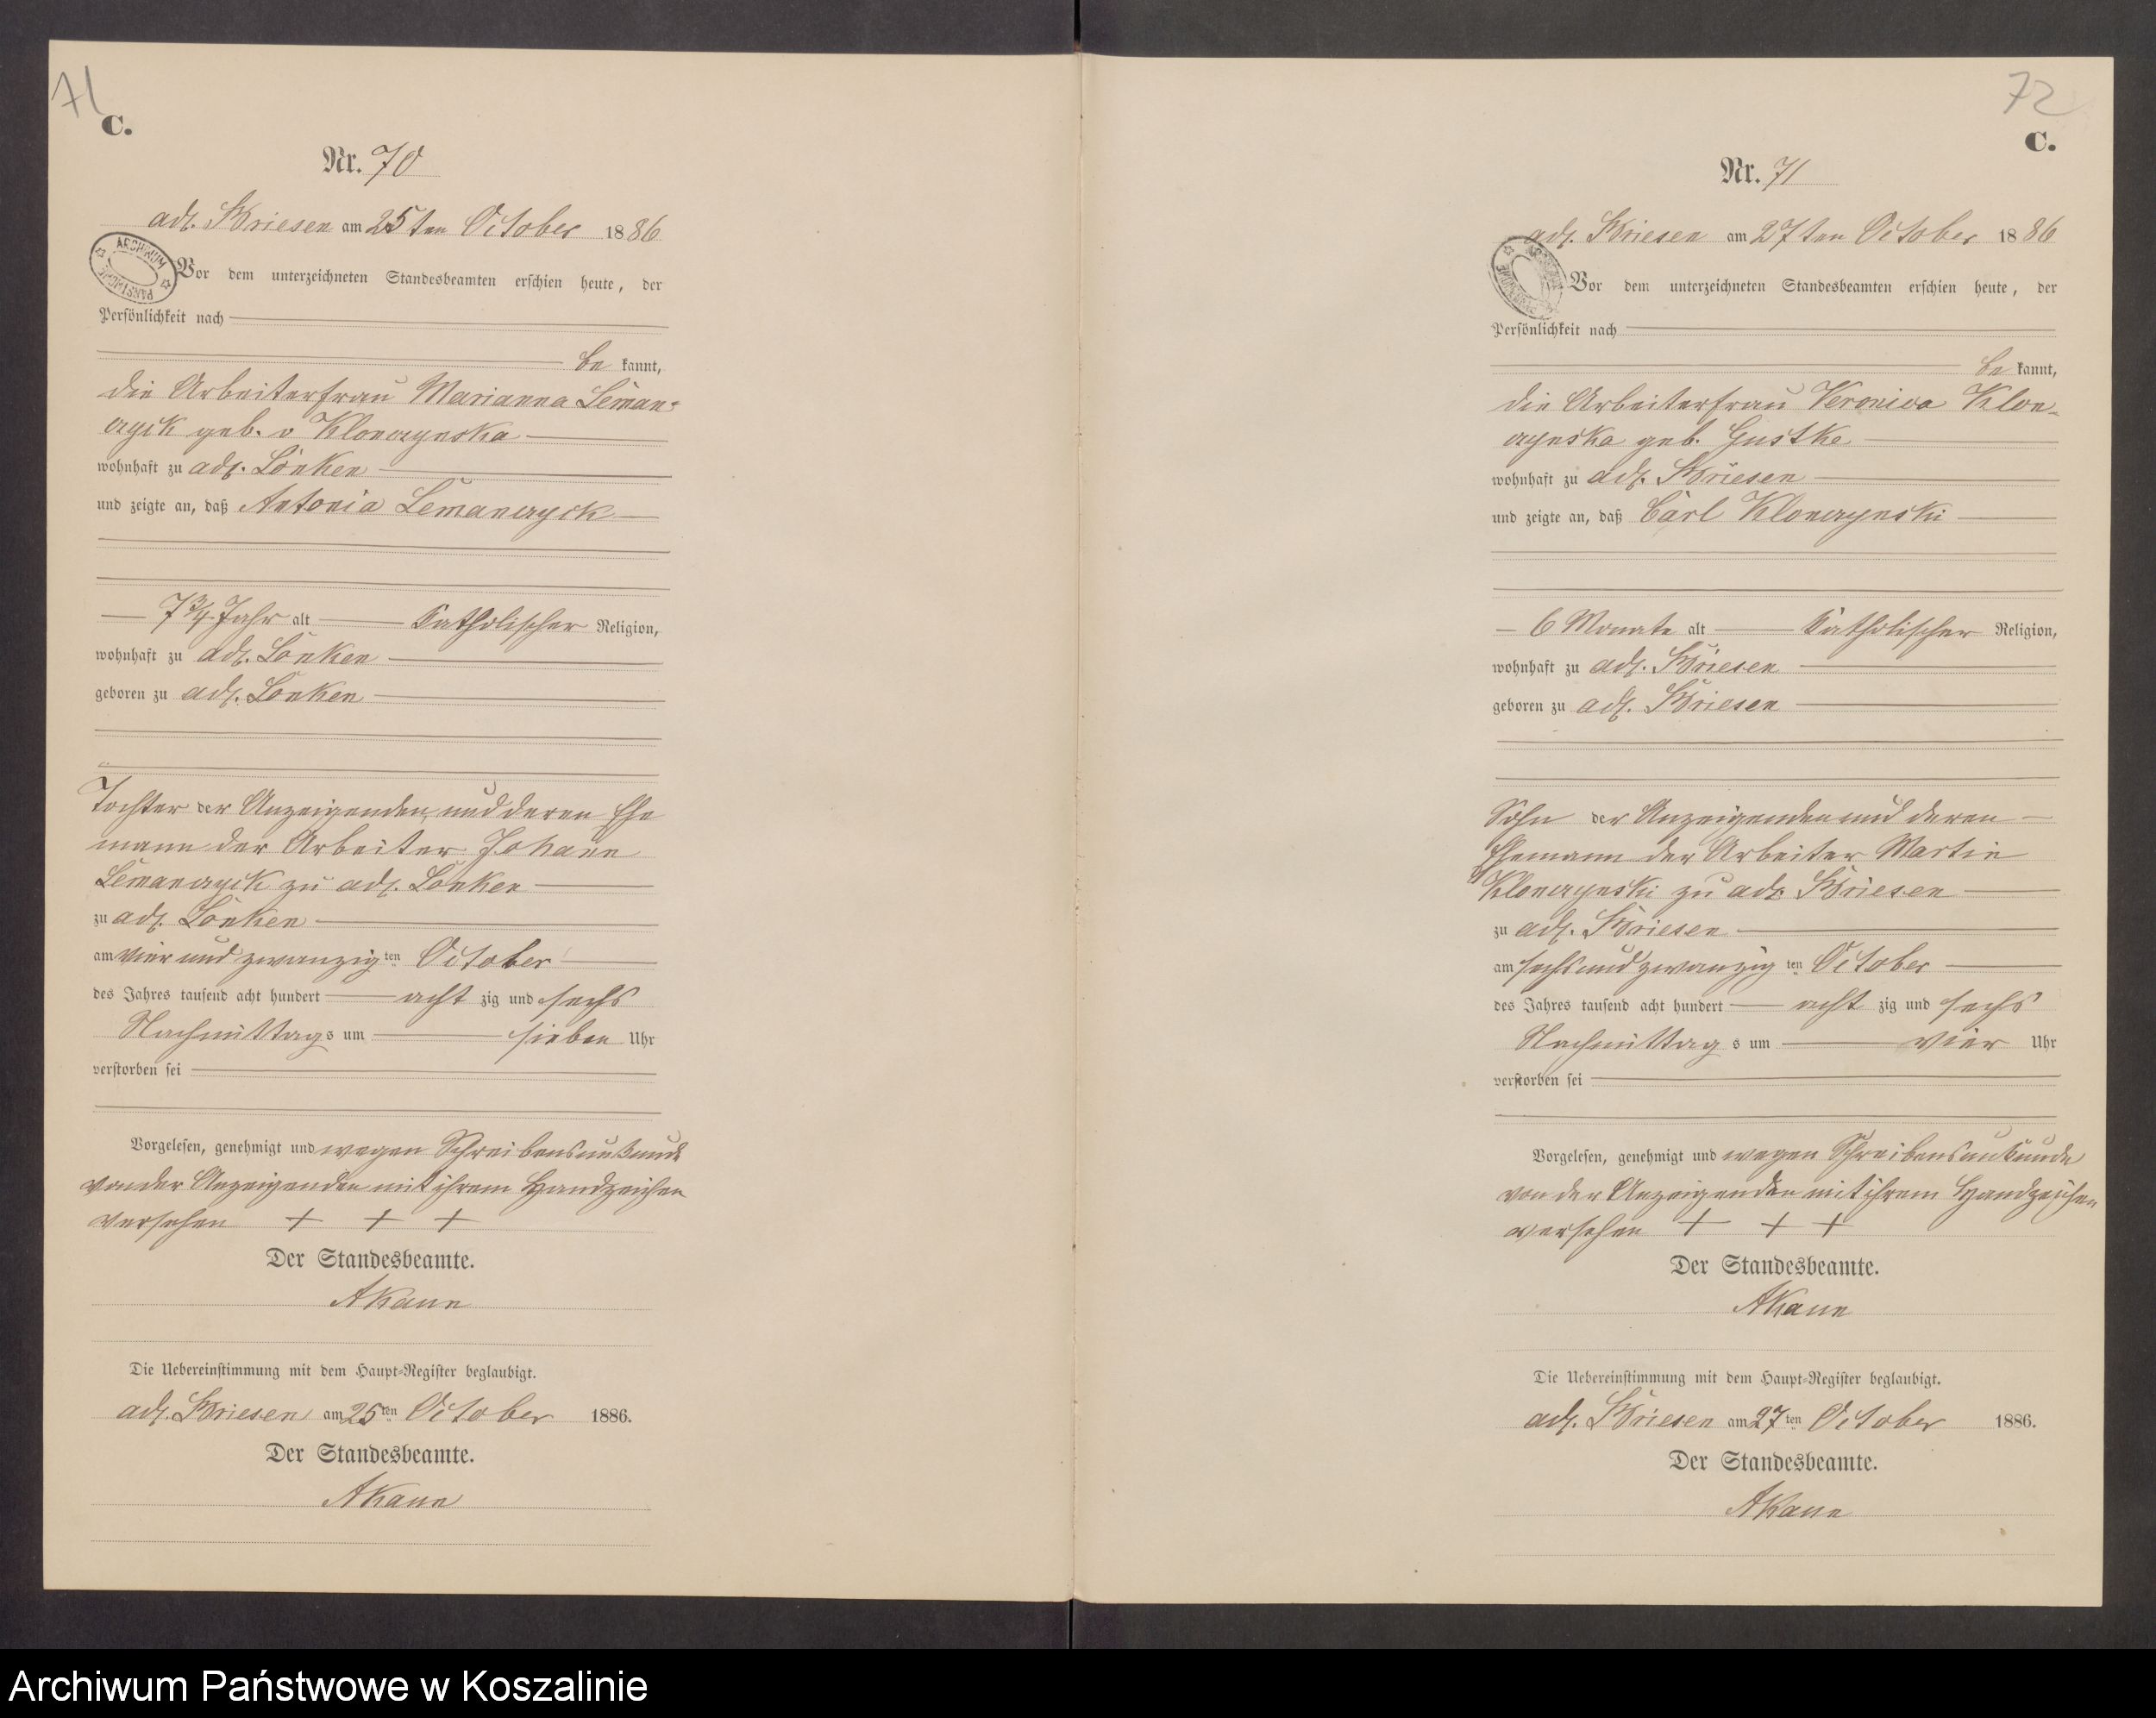 71
C.
Nr. 70
adl. Briesen am 25ten October 1886
ARCHIWUM PAŃSTWOWE
Vor dem unterzeichneten Standesbeamten erschien heute, der
Persönlichkeit nach
be kannt,
die Arbeiterfrau Marianna Leman-
czyck geb. v Klonczynska
wohnhaft zu adl. Lonken
und zeigte an, daß Antonia Lemanczyck
7 3/4 Jahr alt Katholischer Religion,
wohnhaft zu adl. Lonken
geboren zu adl. Lonken
Tochter der Anzeigenden und deren Ehe
mann der Arbeiter Johann
Lemanczyck zu adl. Lonken
zu adl. Lonken
am vier und zwanzig ten October
des Jahres tausend acht hundert acht zig und sechs
Nachmittags um sieben Uhr
verstorben sei
Vorgelesen, genehmigt und wegen Schreibensunkunde
von der Anzeigenden mit ihrem Handzeichen
versehen + + +
Der Standesbeamte.
AKaun
Die Uebereinstimmung mit dem Haupt-Register beglaubigt.
adl. Briesen am 25ten October 1886.
Der Standesbeamte.
AKaun
72
C.
Nr. 71
adl. Briesen am 27ten October 1886
Vor dem unterzeichneten Standesbeamten erschien heute, der
Persönlichkeit nach
be kannt,
die Arbeiterfrau Veronica Klon-
czynska geb. Gustke
wohnhaft zu adl. Briesen
und zeigte an, daß Carl Klonczynski
6 Monate alt Katholischer Religion,
wohnhaft zu adl. Briesen
geboren zu adl. Briesen
Sohn der Anzeigenden und deren
Ehemann der Arbeiter Martin
Klonczynski zu adl. Briesen
zu adl. Briesen
am sechs und zwanzig ten October
des Jahres tausend acht hundert acht zig und sechs
Nachmittag s um vier Uhr
verstorben sei
Vorgelesen, genehmigt und wegen Schreibensunkunde
von der Anzeigenden mit ihrem Handzeichen
versehen + + +
Der Standesbeamte.
AKaun
Die Uebereinstimmung mit dem Haupt-Register beglaubigt.
adl. Briesen am 27ten October 1886.
Der Standesbeamte.
AKaun
Archiwum Państwowe w Koszalinie